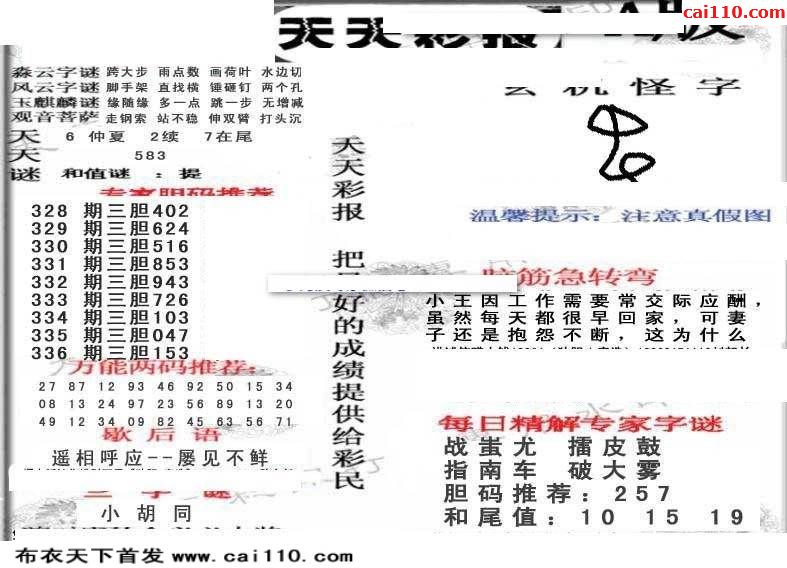 cai110.com
天天彩报
森云字谜 跨大步 雨点数 画荷叶 水边切
风云字谜 脚手架 直找横 锤砸钉 两个孔
玉麒麟谜 缘随缘 多一点 跳一步 无增减
观音菩萨 走钢索 站不稳 伸双臂 打头沉
天 6 仲夏 2续 7在尾
天 583
谜 和值谜 : 提
专家胆码推荐
328 期三胆402
329 期三胆624
330 期三胆516
331 期三胆853
332 期三胆943
333 期三胆726
334 期三胆103
335 期三胆047
336 期三胆153
万能两码推荐:
27 87 12 93 46 92 50 15 34
08 13 24 97 23 56 89 13 20
49 12 34 09 82 45 63 56 71
歇后语
遥相呼应--屡见不鲜
三字谜
小胡同
天天彩报 把最好的成绩提供给彩民
玄机怪字
温馨提示: 注意真假图
脑筋急转弯
小王因工作需要常交际应酬,
虽然每天都很早回家,可妻
子还是抱怨不断,这为什么
每日精解专家字谜
战蚩尤 擂皮鼓
指南车 破大雾
胆码推荐: 257
和尾值: 10 15 19
布衣天下首发 www.cai110.com